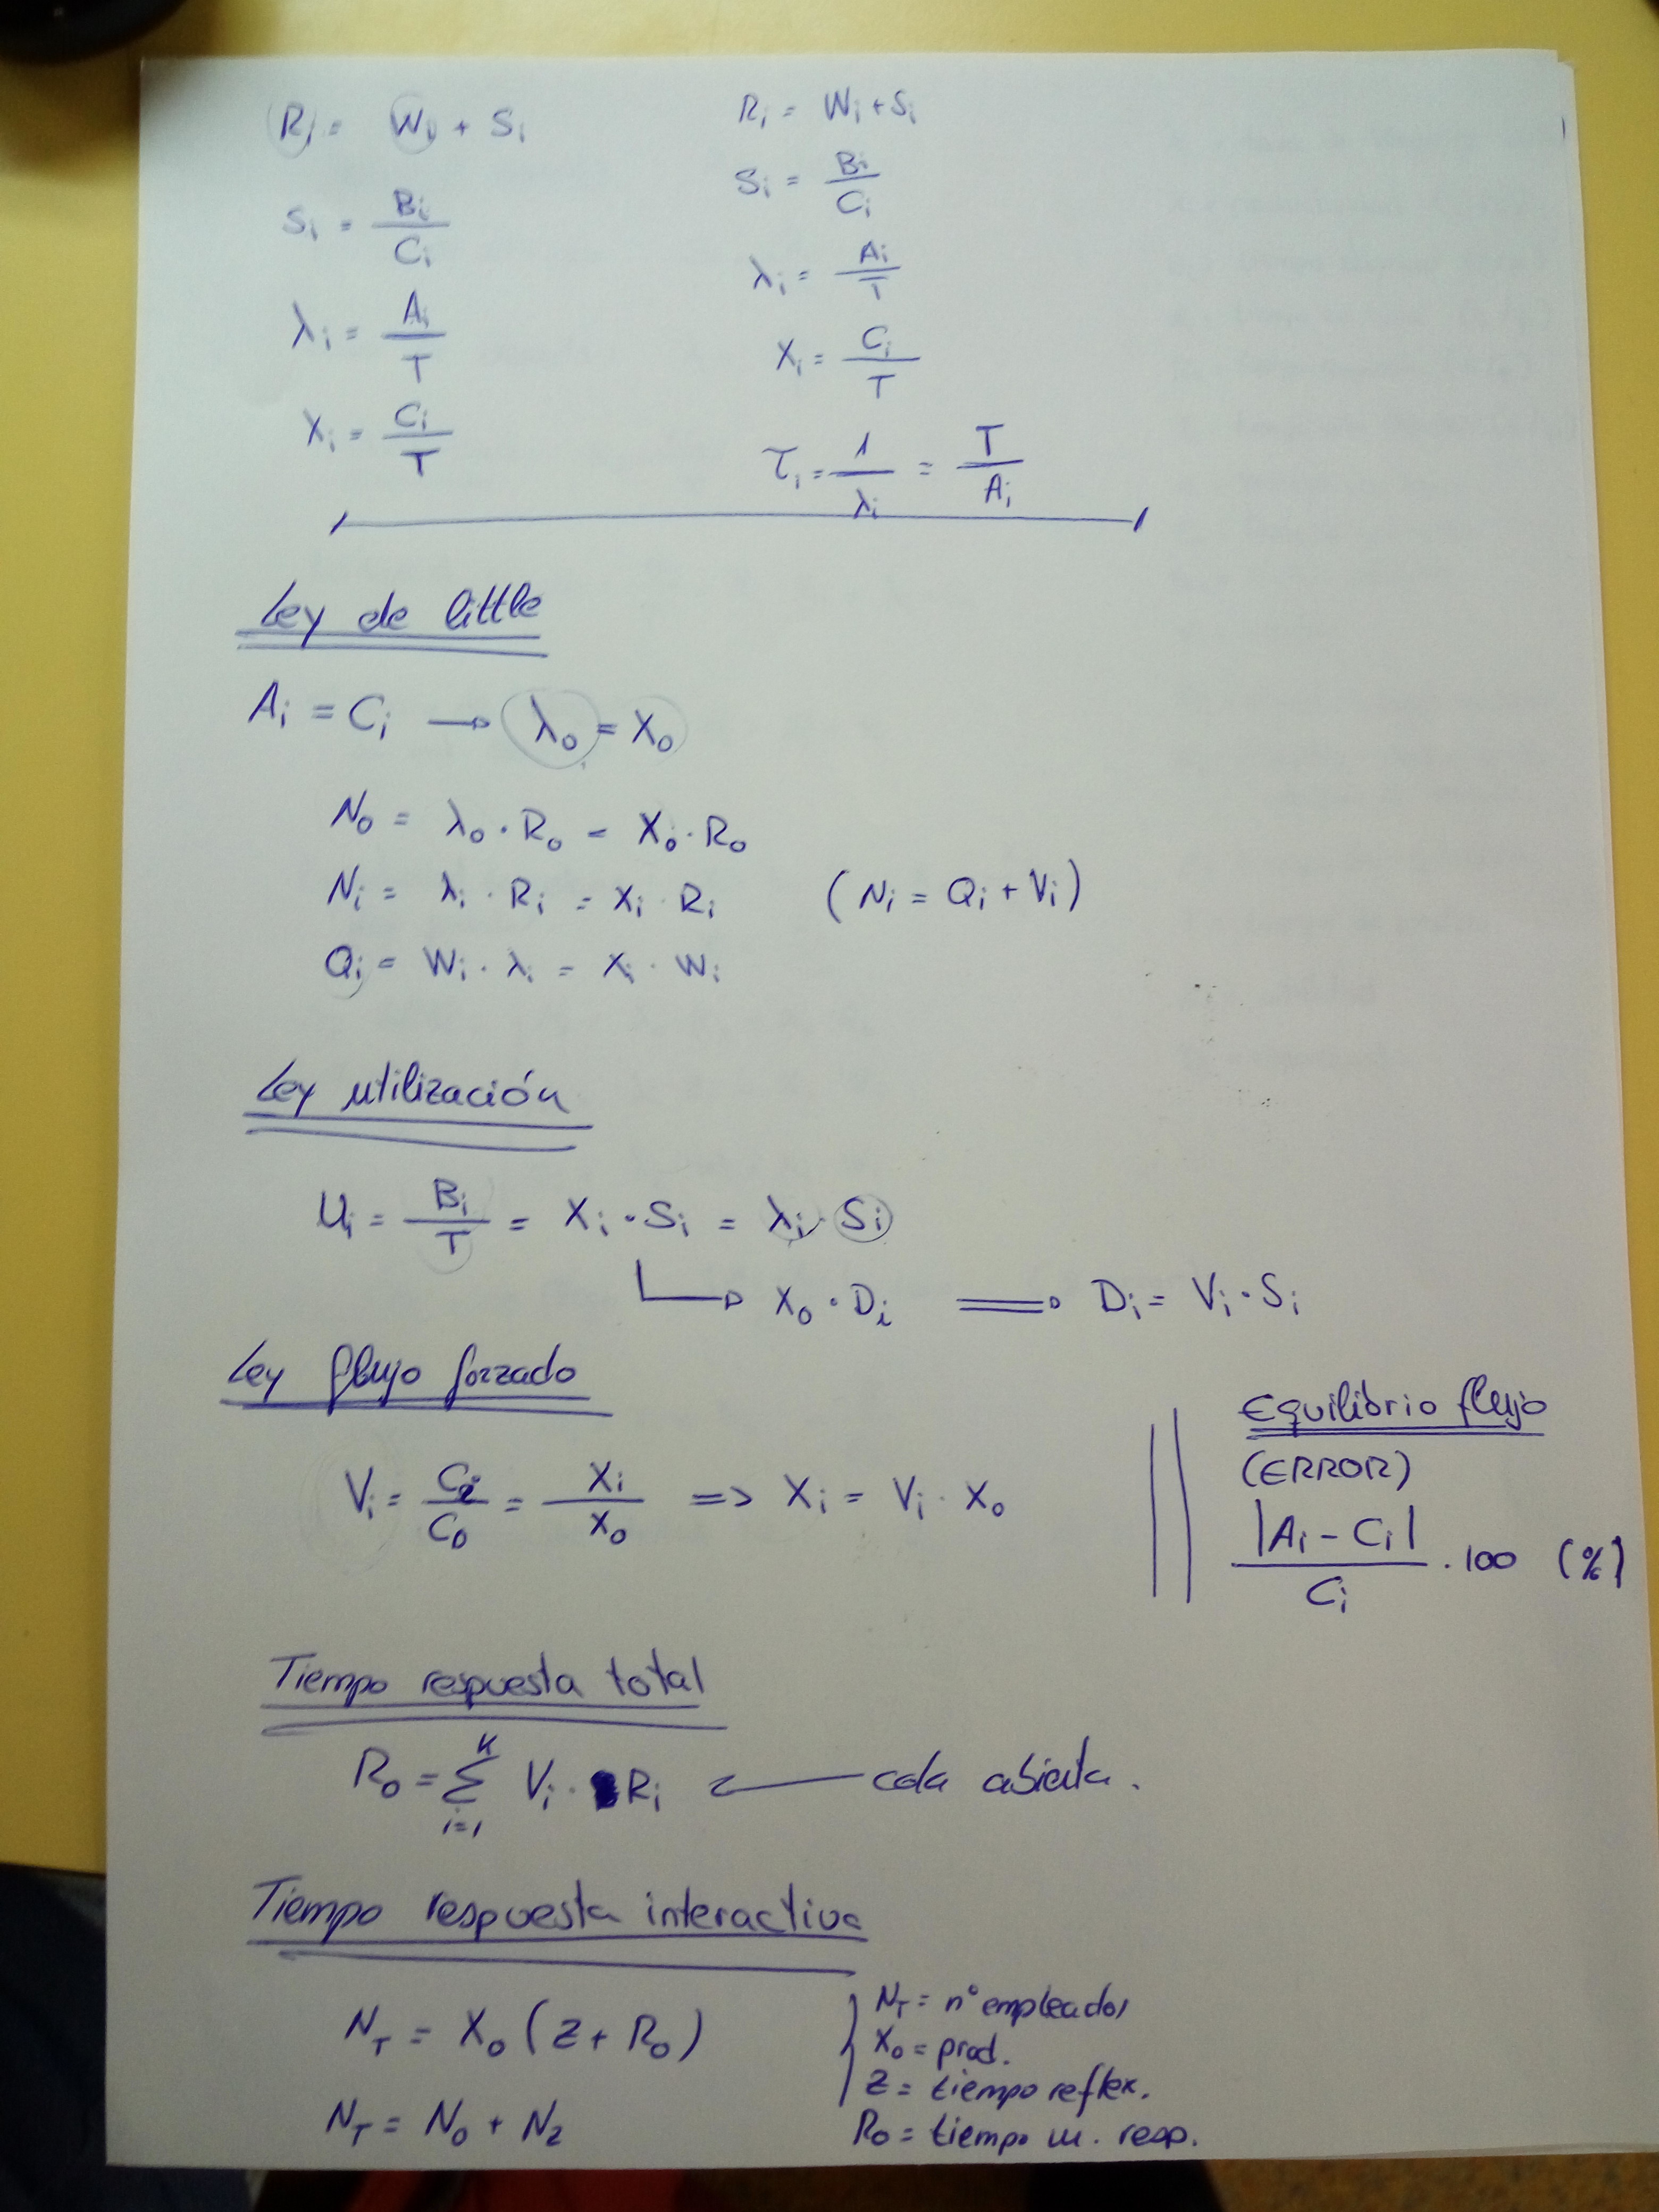 Ri = Wi + Si
Si = Bi / Ci
λi = Ai / T
Xi = Ci / T
Ri = Wi + Si
Si = Bi / Ci
λi = Ai / T
Xi = Ci / T
τi = 1 / λi = T / Ai
Ley de little
Ai = Ci → λ0 = X0
N0 = λ0 · R0 = X0 · R0
Ni = λi · Ri = Xi · Ri (Ni = Qi + Vi)
Qi = Wi · λi = Xi · Wi
Ley utilización
Ui = Bi / T = Xi · Si = λi · Si
→ X0 · Di ⇒ Di = Vi · Si
Ley flujo forzado
Vi = Ci / C0 = Xi / X0 => Xi = Vi · X0
Equilibrio flujo
(ERROR)
|Ai - Ci| / Ci · 100 (%)
Tiempo respuesta total
R0 = Σ i=1 K Vi · Ri ← cola abierta.
Tiempo respuesta interactiva
NT = X0 (Z + R0)
NT = N0 + NZ
NT = nº empleados
X0 = prod.
Z = tiempo reflex.
R0 = tiempo m. resp.